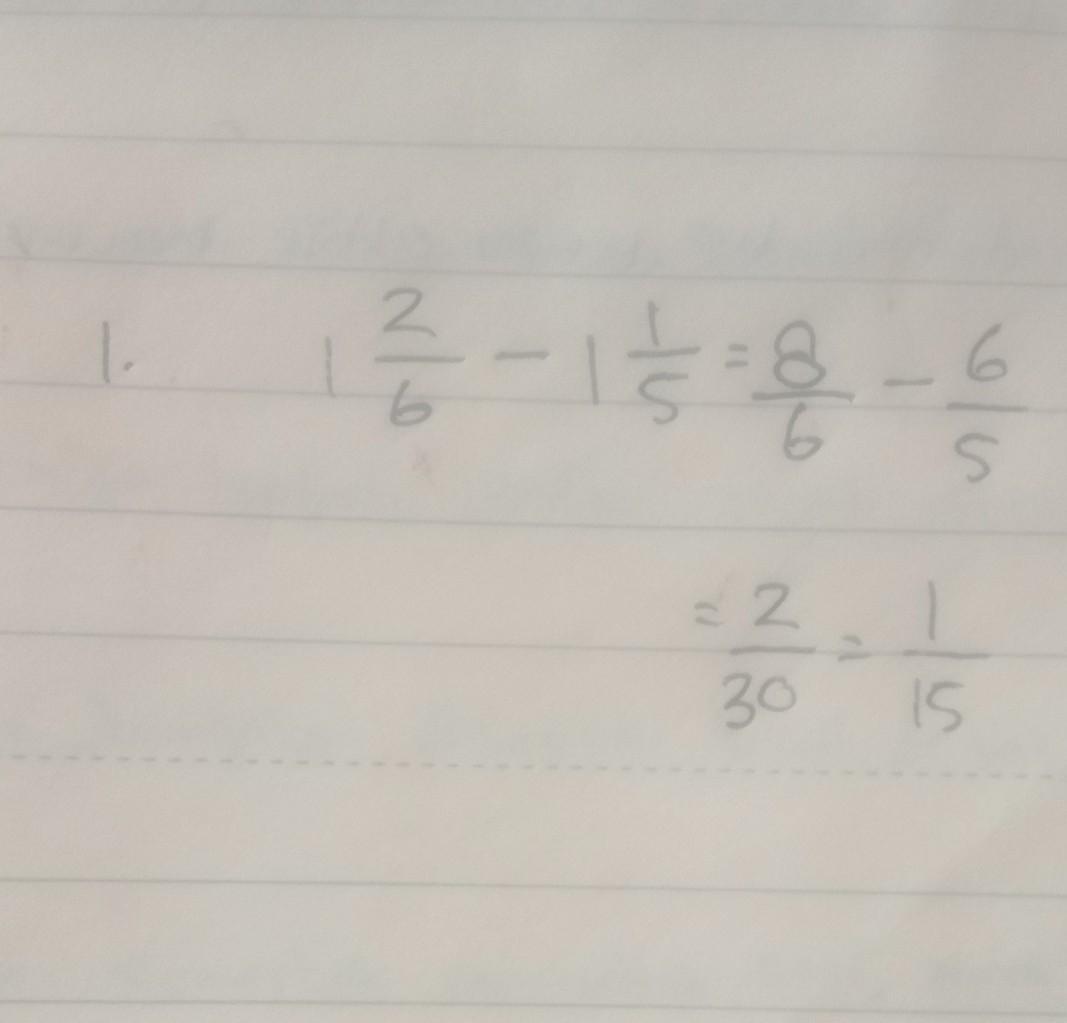 1. 1 2/6 - 1 1/5 = 8/6 - 6/5
= 2/30 = 1/15